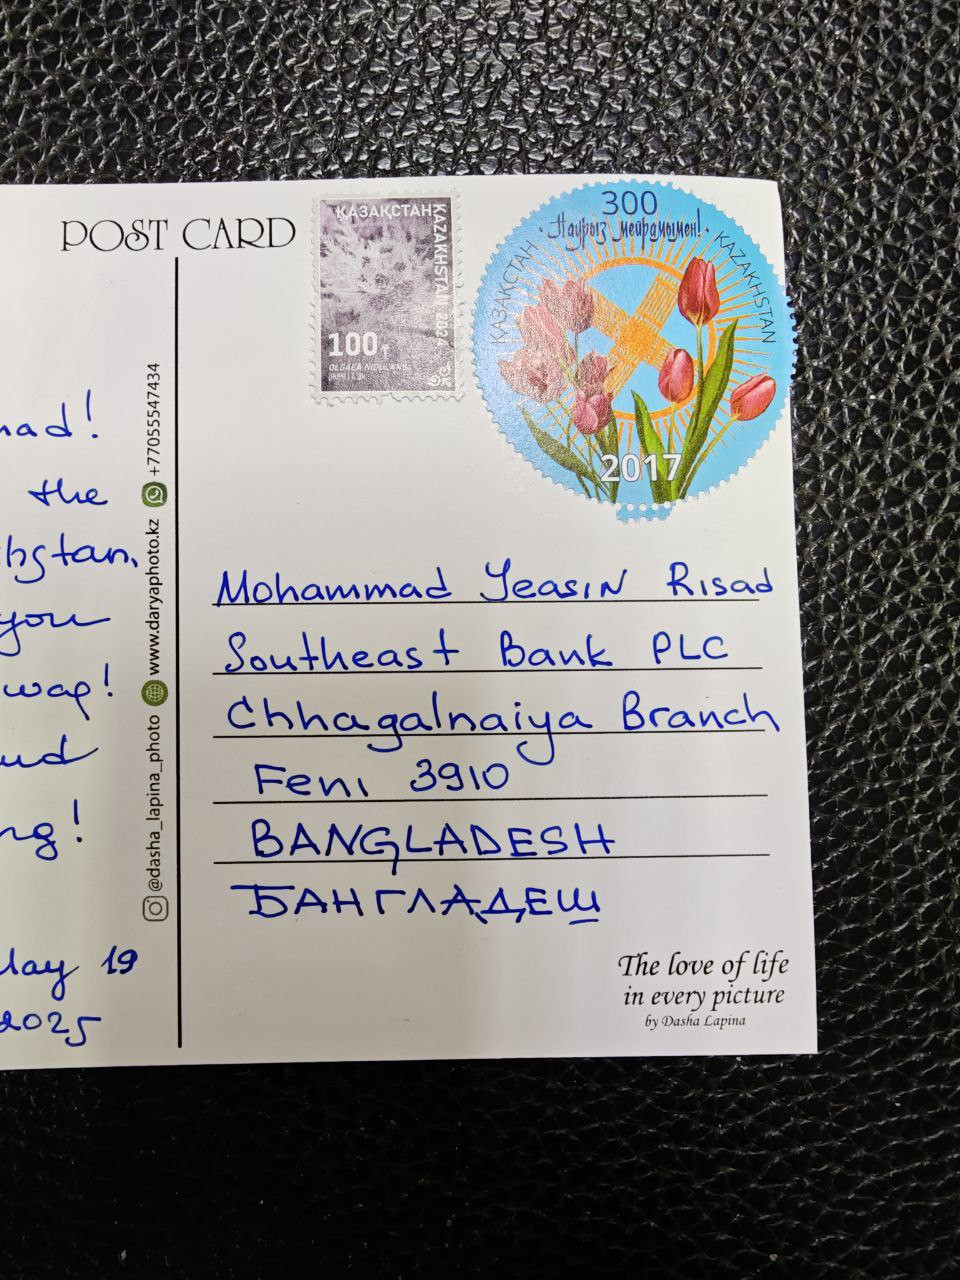 POST CARD
ҚАЗАҚСТАН
KAZAKHSTAN 2024
100₸
OLGAEA NIDULANS
300
Наурыз мейрамымен!
ҚАЗАҚСТАН
KAZAKHSTAN
2017
the
you
May 19
2025
@dasha_lapina_photo www.daryaphoto.kz +77055547434
Mohammad Yeasin Risad
Southeast Bank PLC
Chhagalnaiya Branch
Feni 3910
BANGLADESH
БАНГЛАДЕШ
The love of life
in every picture
by Dasha Lapina